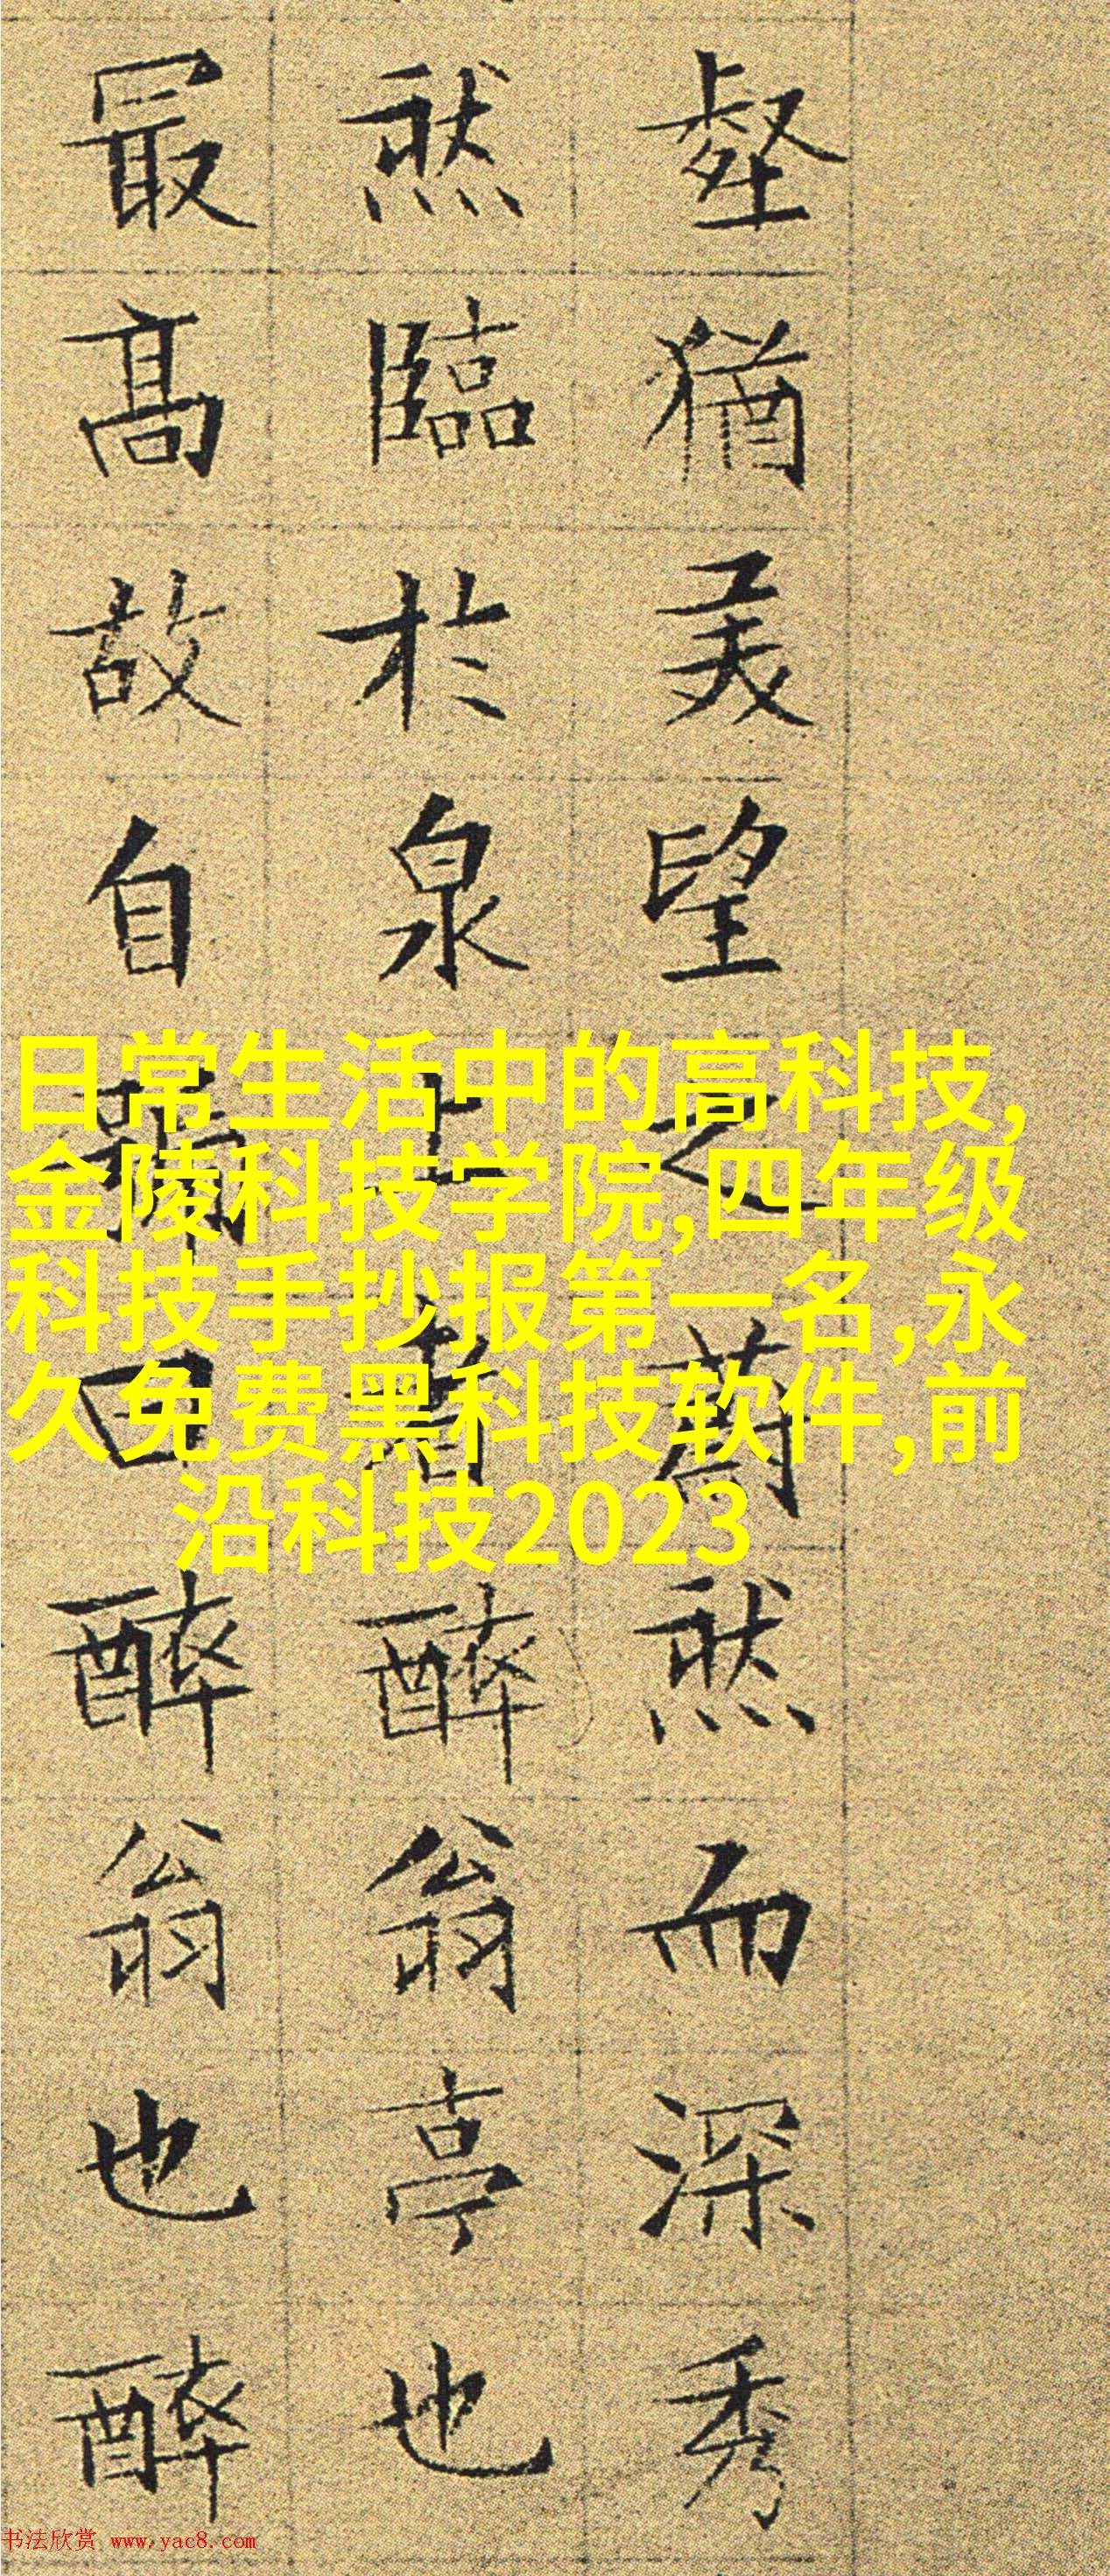 壑猶美望之蔚然而深秀
然臨於泉上者醉翁亭也
最髙故自曰醉翁也醉
日常生活中的高科技,
金陵科技学院,四年级
科技手抄报第一名,永
久免费黑科技软件,前
沿科技2023
书法欣赏 www.yac8.com